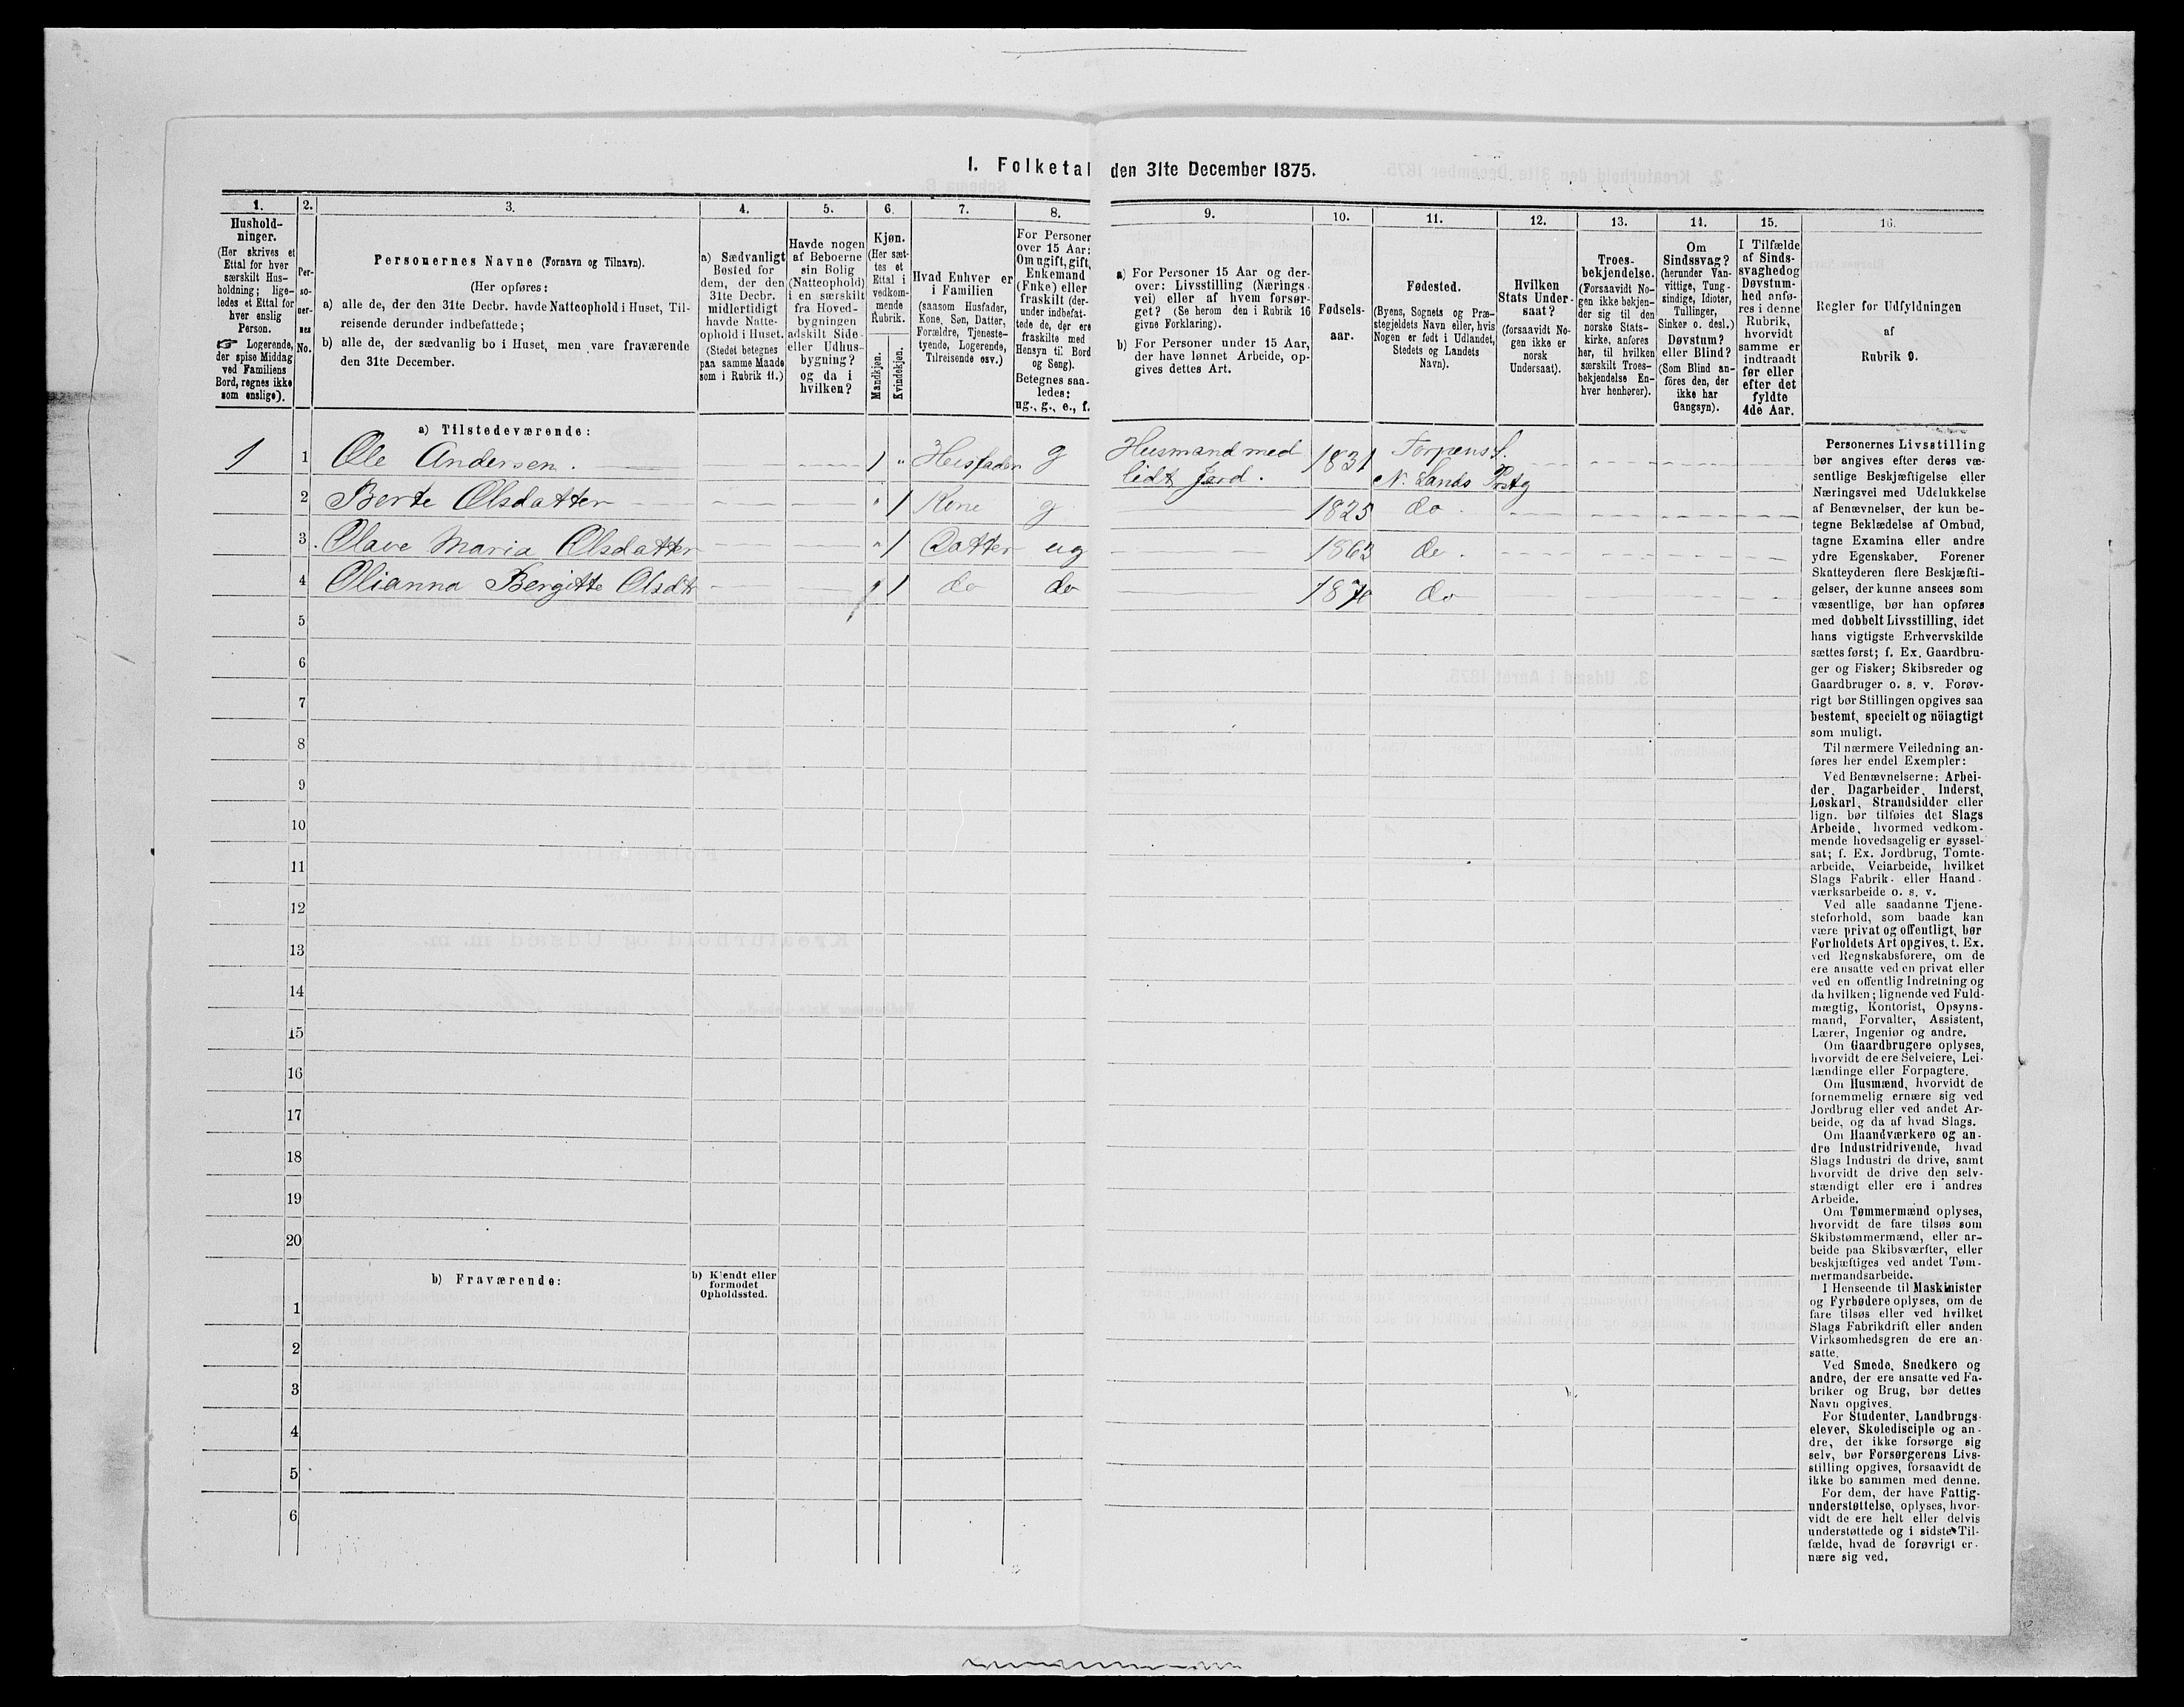 I. Folketal den 31te December 1875.
1.
Hushold-
ninger.
(Her skrives et
Ettal for hver
særskilt Hus-
holdning; lige-
ledes et Ettal for
hver enslig
Person.
☞ Logerende,
der spise Middag
ved Familiens
Bord, regnes ikke
som enslige).
2.
Per-
so-
ner-
nes
No.
3.
Personernes Navne (Fornavn og Tilnavn).
(Her opføres:
a) alle de, der den 31te Decbr. havde Natteophold i Huset, Til-
reisende derunder indbefattede;
b) alle de, der sædvanlig bo i Huset, men vare fraværende
den 31te December.
4.
a) Sædvanligt
Bosted for
dem, der den
31te Decbr.
midlertidigt
havde Natte-
ophold i Huset.
(Stedet betegnes
paa samme Maade
som i Rubrik 11.)
5.
Havde nogen
af Beboerne
sin Bolig
(Natteophold)
i en særskilt
fra Hoved-
bygningen
adskilt Side-
eller Udhus-
bygning?
og da i
hvilken?
6.
Kjøn.
(Her sæt-
tes et
Ettal i
vedkom-
mende
Rubrik.
Mandkjøn.
Kvindekjøn.
7.
Hvad Enhver er
i Familien
(saasom Husfader,
Kone, Søn, Datter,
Forældre, Tjeneste-
tyende, Logerende,
Tilreisende osv.)
8.
For Personer
over 15 Aar:
Om ugift, gift,
Enkemand
(Enke) eller
fraskilt (der-
under indbefat-
tede de, der ere
fraskilte med
Hensyn til Bord
og Seng).
Betegnes saa-
ledes:
ug., g., e., f.
9.
a) For Personer 15 Aar og der-
over: Livsstilling (Nærings-
vei) eller af hvem forsør-
get? (Se herom den i Rubrik 16
givne Forklaring).
b) For Personer under 15 Aar,
der have lønnet Arbeide, op-
gives dettes Art.
10.
Fødsels-
aar.
11.
Fødested.
(Byens, Sognets og Præ-
stegjeldets Navn eller, hvis
Nogen er født i Udlandet,
Stedets og Landets
Navn).
12.
Hvilken
Stats Under-
saat?
(forsaavidt No-
gen ikke er
norsk
Undersaat).
13.
Troes-
bekjendelse.
(Forsaavidt No-
gen ikke bekjen-
der sig til den
norske Stats-
kirke, anføres
her, til hvilken
særskilt Troes-
bekjendelse En-
hver henhører).
14.
Om
Sindssvag?
(herunder Van-
vittige, Tung-
sindige, Idioter,
Tullinger,
Sinker o. desl.)
Døvstum?
eller Blind?
(Som Blind an-
føres den, der
ikke har
Gangsyn).
15.
I Tilfælde
af Sinds-
svaghed og
Døvstum-
hed anfø-
res i denne
Rubrik,
hvorvidt
samme er
indtraadt
før eller
efter det
fyldte
4de Aar.
16.
Regler for Udfyldningen
af
Rubrik 9.
a) Tilstedeværende:
1 1 Ole Andersen. 1 " Husfader g Husmand med lidt Jord. 1831 Torpens S. N. Lands Prstg
2 Berte Olsdatter " 1 Kone g 1825 do.
3 Olave Maria Olsdatter " 1 Datter ug 1863 do.
4 Olianna Bergitte Olsdtr " 1 do do 1870 do
5
6
7
8
9
10
11
12
13
14
15
16
17
18
19
20
b) Fraværende:
b) Kjendt eller
formodet
Opholdssted.
1
2
3
4
5
6
Personernes Livsstilling
bør angives efter deres væ-
sentlige Beskjæftigelse eller
Næringsvei med Udelukkelse
af Benævnelser, der kun be-
tegne Beklædelse af Ombud,
tagne Examina eller andre
ydre Egenskaber. Forener
Skatteyderen flere Beskjæfti-
gelser, der kunne ansees som
væsentlige, bør han opføres
med dobbelt Livsstilling, idet
hans vigtigste Erhvervskilde
sættes først; f. Ex. Gaardbru-
ger og Fisker; Skibsreder og
Gaardbruger o. s. v. Forøv-
rigt bør Stillingen opgives saa
bestemt, specielt og nöiagtigt
som muligt.
Til nærmere Veiledning an-
føres her endel Exempler:
Ved Benævnelserne: Arbei-
der, Dagarbeider, Inderst,
Løskarl, Strandsidder eller
lign. bør tilføies det Slags
Arbeide, hvormed vedkom-
mende hovedsagelig er syssel-
sat; f. Ex. Jordbrug, Tomte-
arbeide, Veiarbeide, hvilket
Slags Fabrik- eller Haand-
værksarbeide o. s. v.
Ved alle saadanne Tjene-
steforhold, som baade kan
være privat og offentligt, bør
Forholdets Art opgives, t. Ex.
ved Regnskabsførere, om de
ere ansatte ved en privat eller
ved en offentlig Indretning og
da hvilken; lignende ved Fuld-
mægtig, Kontorist, Opsyns-
mand, Forvalter, Assistent,
Lærer, Ingeniør og andre.
Om Gaardbrugere oplyses,
hvorvidt de ere Selveiere, Lei-
lændinge eller Forpagtere.
Om Husmænd, hvorvidt de
fornemmelig ernære sig ved
Jordbrug eller ved andet Ar-
beide, og da af hvad Slags.
Om Haandværkere og an-
dre Industridrivende, hvad
Slags Industri de drive, samt
hvorvidt de drive den selv-
stændigt eller ere i andres
Arbeide.
Om Tømmermænd oplyses,
hvorvidt de fare tilsøs som
Skibstømmermænd, eller ar-
beide paa Skibsværfter, eller
beskjæftiges ved andet Tøm-
mermandsarbeide.
I Henseende til Maskinister
og Fyrbødere oplyses, om de
fare tilsøs eller ved hvilket
Slags Fabrikdrift eller anden
Virksomhedsgren de ere an-
satte.
Ved Smede, Snedkere og
andre, der ere ansatte ved Fa-
briker og Brug, bør dettes
Navn opgives.
For Studenter, Landbrugs-
elever, Skoledisciple og an-
dre, der ikke forsørge sig
selv, bør Forsørgerens Livs-
stilling opgives, forsaavidt de
ikke bo sammen med denne.
For dem, der have Fattig-
understøttelse, oplyses, hvor-
vidt de ere helt eller delvis
understøttede og i sidste Til-
fælde, hvad de forøvrigt er-
nære sig ved.